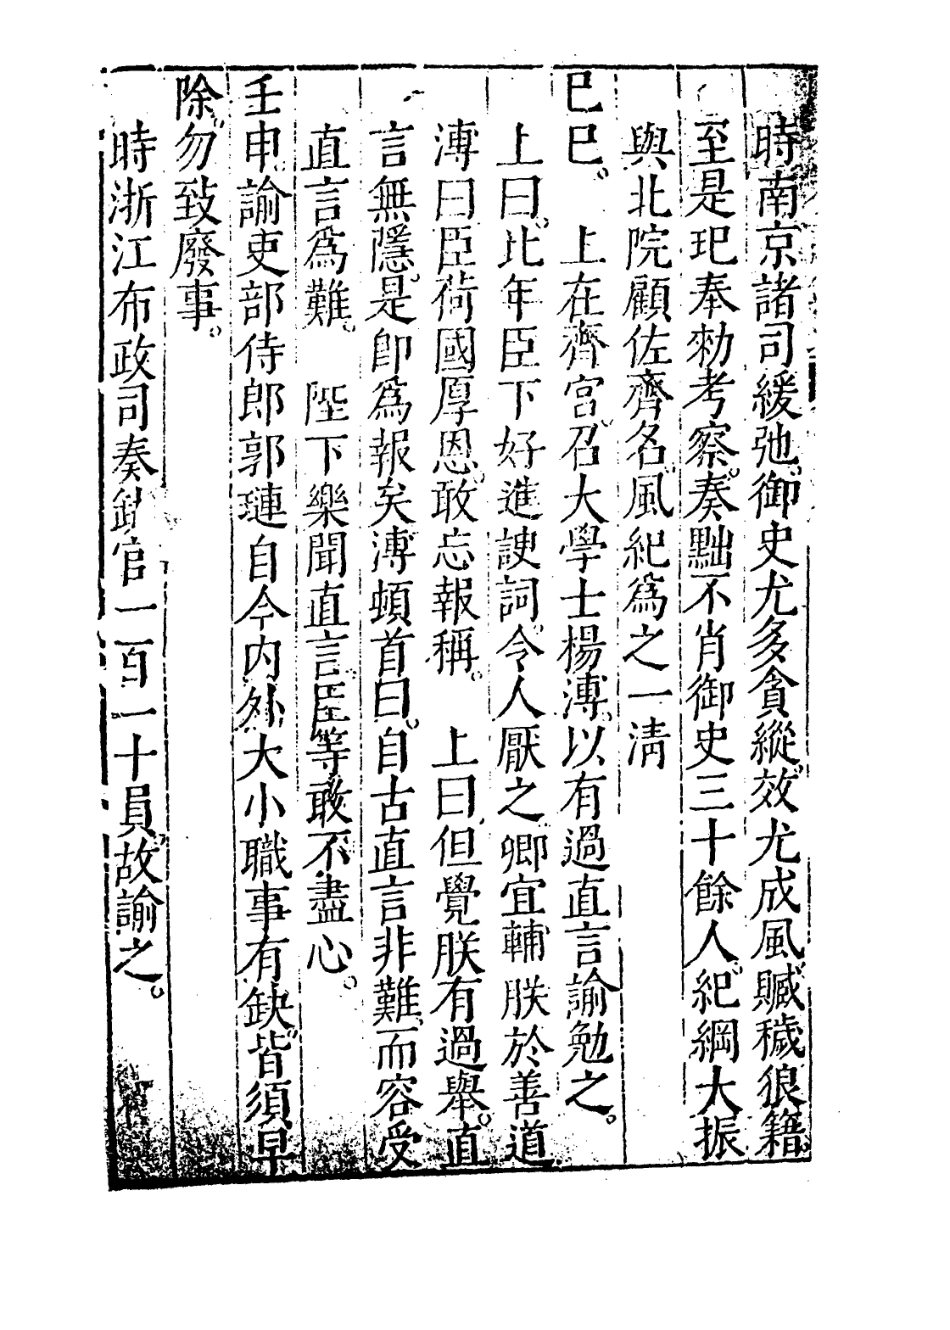 時南京諸司緩弛御史尤多貪縱效尤成風贓穢狼籍
至是玘奉勑考察奏黜不肖御史三十餘人紀綱大振
與北院顧佐齊名風紀爲之一清
己巳。上在齊宮召大學士楊溥以有過直言諭勉之。
上曰比年臣下好進諛詞令人厭之卿宜輔朕於善道
溥曰臣荷國厚恩敢忘報稱。上曰但覺朕有過舉直
言無隱是卽爲報矣溥頓首曰自古直言非難而容受
直言爲難。陛下樂聞直言臣等敢不盡心。
壬申諭吏部侍郎郭璡自今內外大小職事有缺皆須早
除勿致廢事。
時浙江布政司奏缺官一百一十員故諭之。